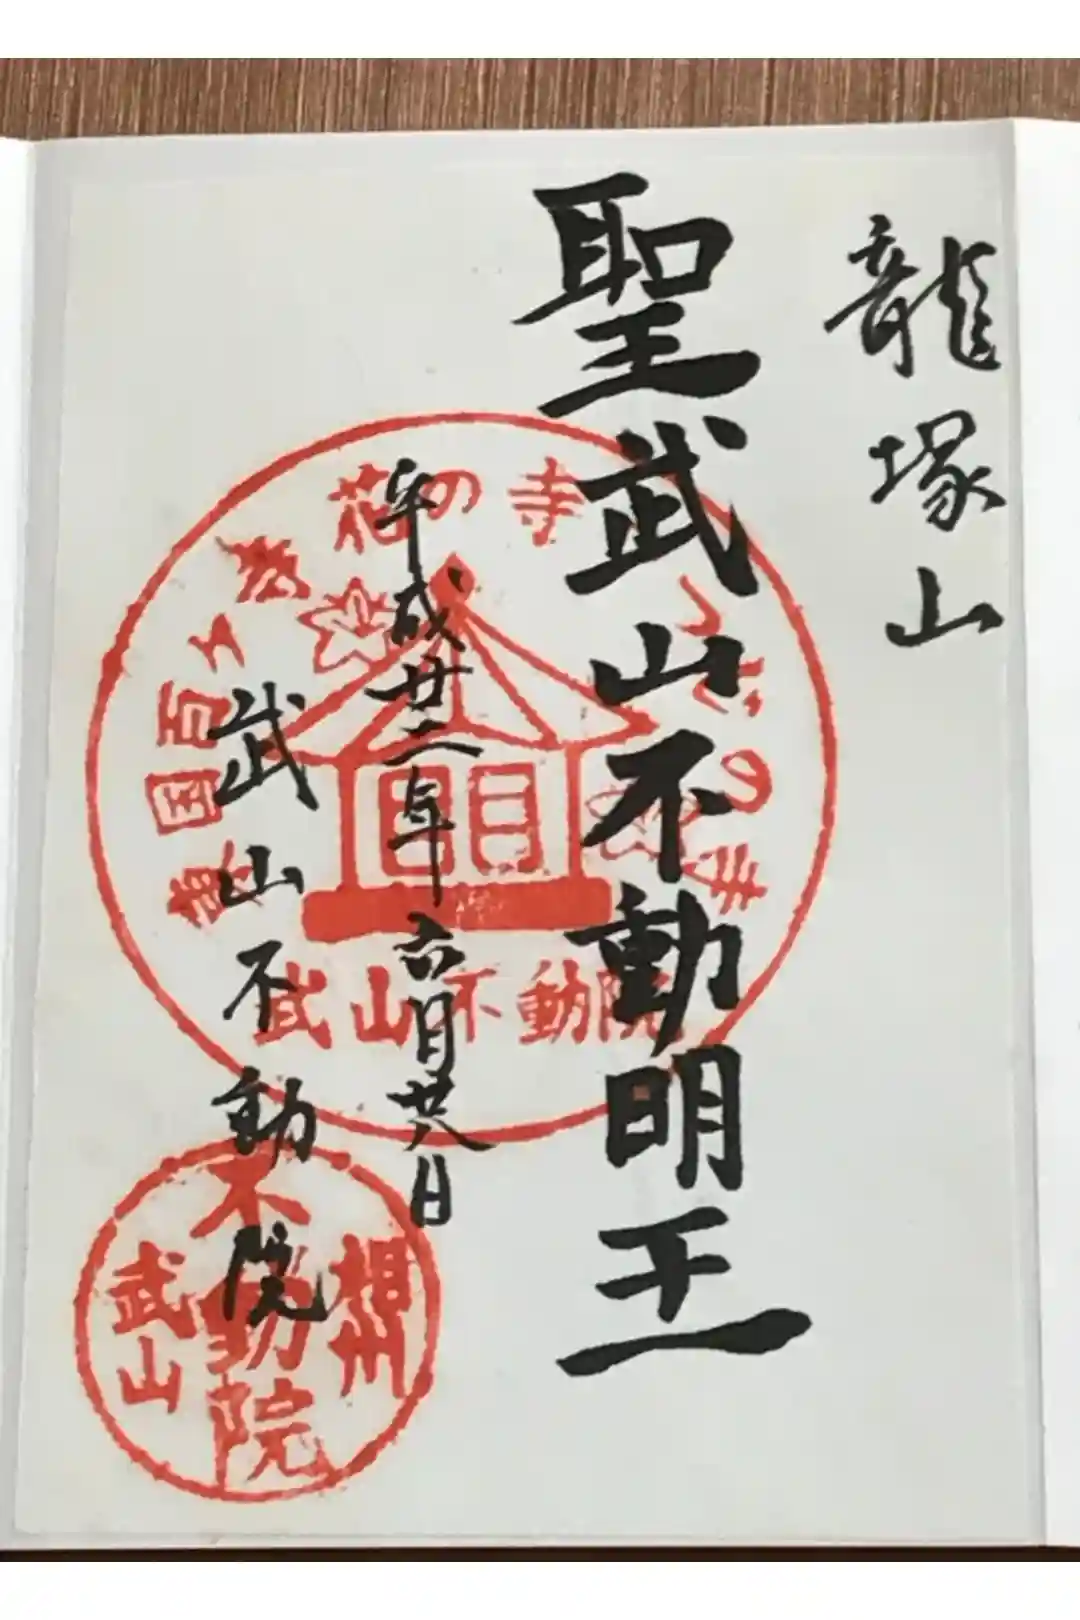 龍塚山
聖武山不動明王
平成廿二年六月廿八日
武山不動院
花の寺
つつじの寺
東国百八
武山不動院
相州
不動院
武山